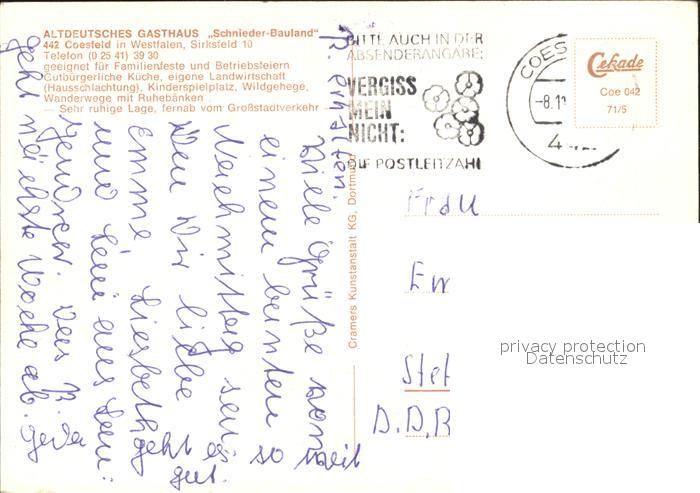 ALTDEUTSCHES GASTHAUS „Schnieder-Bauland"
442 Coesfeld in Westfalen, Sirksfeld 10
Telefon (0 25 41) 39 30
geeignet für Familienfeste und Betriebsfeiern
Gutbürgerliche Küche, eigene Landwirtschaft
(Hausschlachtung), Kinderspielplatz, Wildgehege,
Wanderwege mit Ruhebänken
— Sehr ruhige Lage, fernab vom Großstadtverkehr —
BITTE AUCH IN DER
ABSENDERANGABE:
VERGISS
MEIN
NICHT:
DIE POSTLEITZAHL
COES
-8.1
4
Cekade
Coe 042
71/5
Cramers Kunstanstalt KG, Dortmund
Viele Grüße von
einem bunten
Nachmittag sen
Wir liebe
Emmi, Liesbeth
und aus
geht es so weit
gut.
geht nächste Woche ab.
P. erhalten.
Frau
Em
Stet
D.D.R
privacy protection
Datenschutz